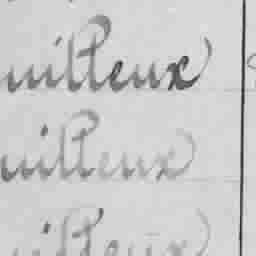 uilleux
uilleux
uilleux